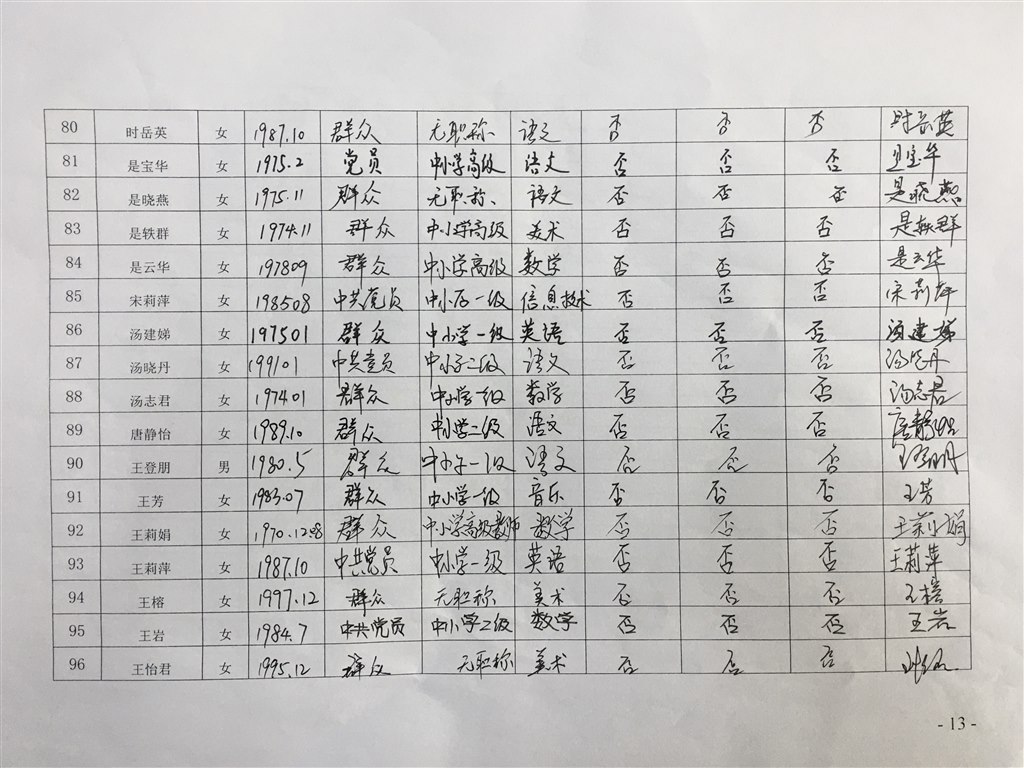 80 时岳英 女 1987.10 群众 无职称 语文 否 否 否 时岳英
81 是宝华 女 1975.2 党员 中小学高级 语文 否 否 否 是宝华
82 是晓燕 女 1975.11 群众 无职称、 语文 否 否 否 是晓燕
83 是轶群 女 1974.11 群众 中小学高级 美术 否 否 否 是轶群
84 是云华 女 197809 群众 中小学高级 数学 否 否 否 是云华
85 宋莉萍 女 198508 中共党员 中小学一级 信息技术 否 否 否 宋莉萍
86 汤建娣 女 197501 群众 中小学一级 英语 否 否 否 汤建娣
87 汤晓丹 女 199101 中共党员 中小学二级 语文 否 否 否 汤晓丹
88 汤志君 女 197401 群众 中小学一级 数学 否 否 否 汤志君
89 唐静怡 女 1989.10 群众 中小学二级 语文 否 否 否 唐静怡
90 王登朋 男 1980.5 群众 中小学一级 语文 否 否 否 王登朋
91 王芳 女 1983.07 群众 中小学一级 音乐 否 否 否 王芳
92 王莉娟 女 1970.12.08 群众 中小学高级教师 数学 否 否 否 王莉娟
93 王莉萍 女 1987.10 中共党员 中小学一级 英语 否 否 否 王莉萍
94 王榕 女 1997.12 群众 无职称 美术 否 否 否 王榕
95 王岩 女 1984.7 中共党员 中小学二级 数学 否 否 否 王岩
96 王怡君 女 1995.12 群众 无职称 美术 否 否 否
- 13 -